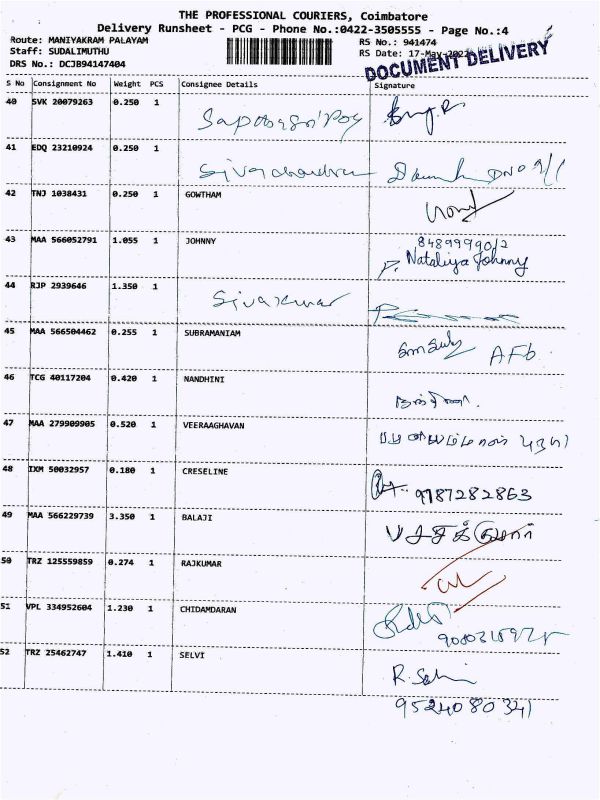 THE PROFESSIONAL COURIERS, Coimbatore
Delivery Runsheet - PCG - Phone No.:0422-3505555 - Page No.:4
Route: MANIYAKRAM PALAYAM RS No.: 941474
Staff: SUDALIMUTHU RS Date: 17-May-2022
DRS No.: DCJB94147404
DOCUMENT DELIVERY
S No Consignment No Weight PCS Consignee Details Signature
40 SVK 20079263 0.250 1
41 EDQ 23210924 0.250 1 Sivachandran
42 TNJ 1038431 0.250 1 GOWTHAM
43 MAA 566052791 1.055 1 JOHNNY
Nataliya Johnny
44 RJP 2939646 1.350 1 Sivakumar
45 MAA 566504462 0.255 1 SUBRAMANIAM
46 TCG 40117204 0.420 1 NANDHINI நந்தினி
47 MAA 279909905 0.520 1 VEERAAGHAVAN
48 IXM 50032957 0.180 1 CRESELINE 9787282863
49 MAA 566229739 3.350 1 BALAJI
50 TRZ 125559859 0.274 1 RAJKUMAR
51 VPL 334952604 1.230 1 CHIDAMDARAN
52 TRZ 25462747 1.410 1 SELVI
9524080341